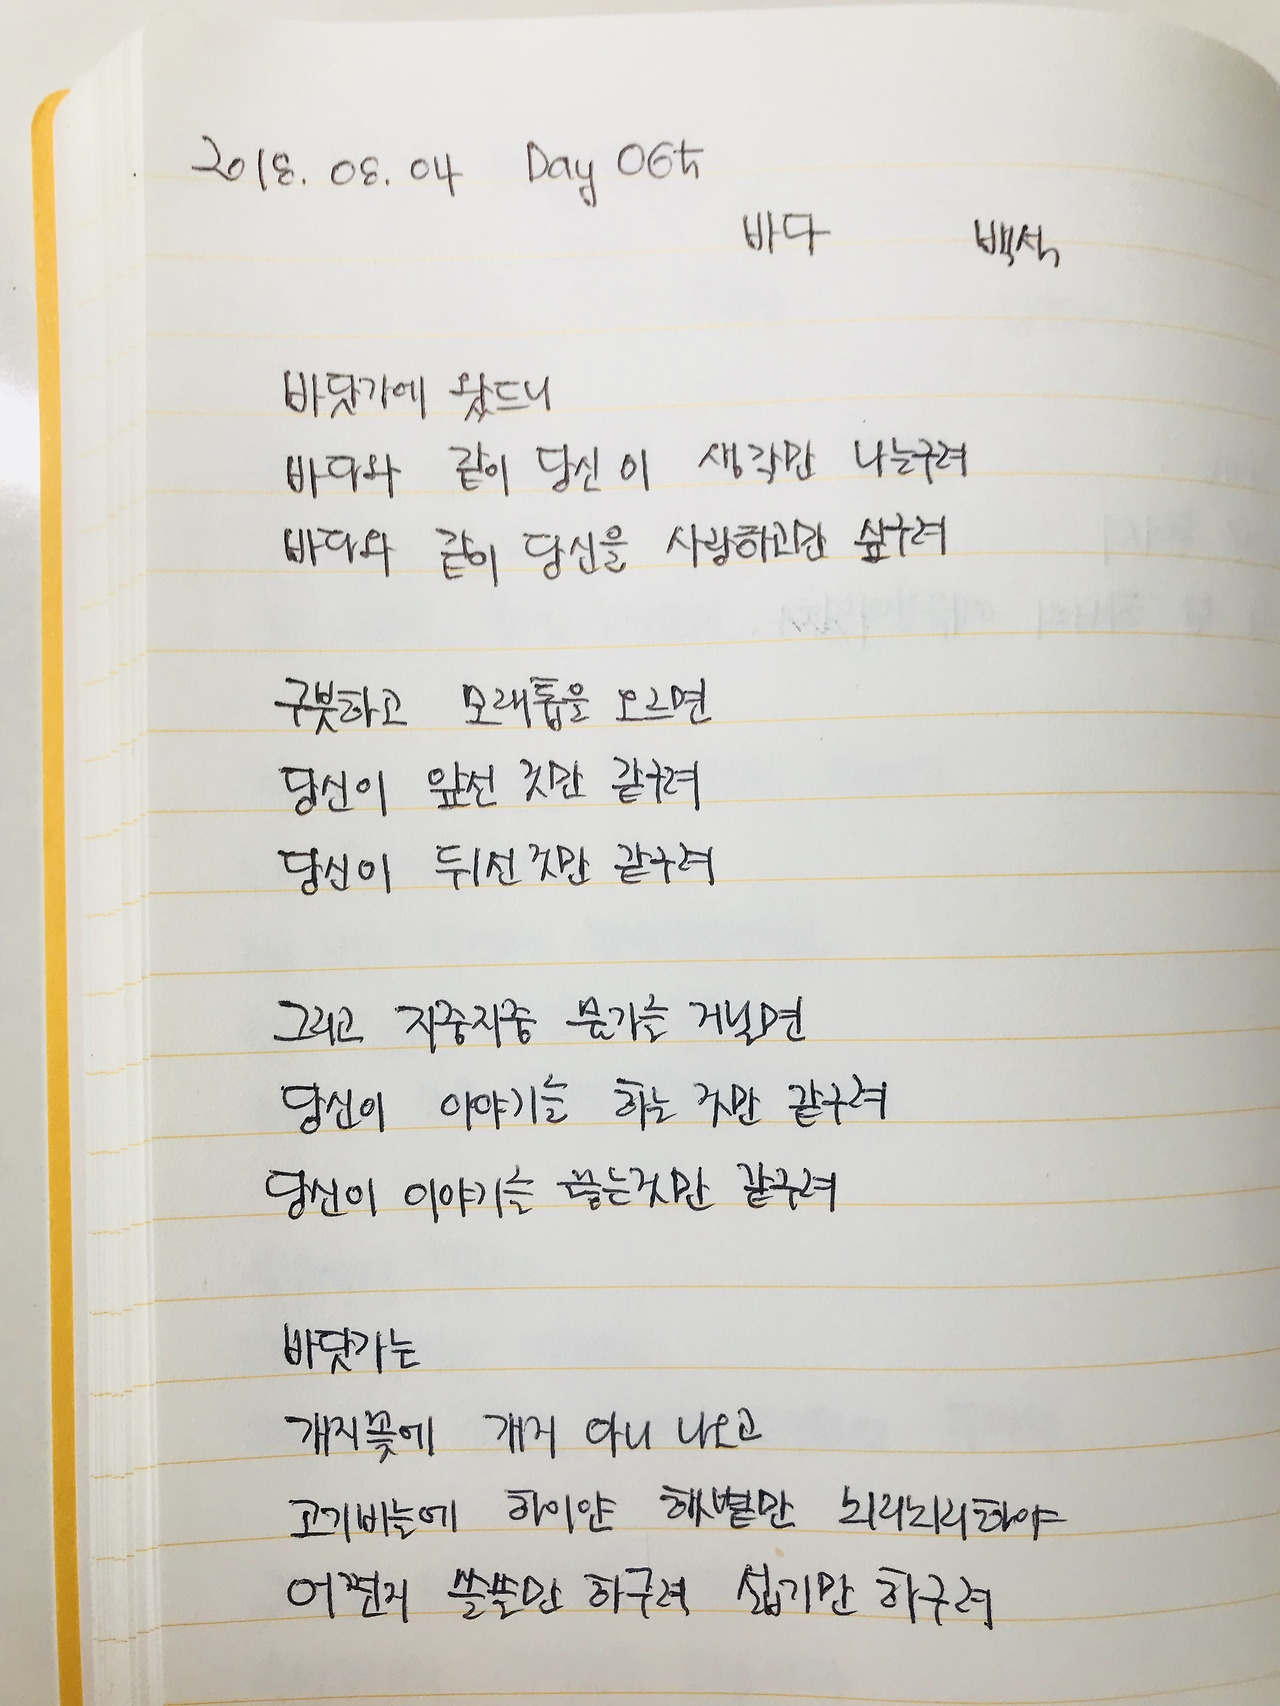 2018. 08. 04 Day 06th
바다 백석
바닷가에 왔드니
바다와 같이 당신이 생각만 나는구려
바다와 같이 당신을 사랑하고만 싶구려
구붓하고 모래톱을 오르면
당신이 앞선 것만 같구려
당신이 뒤선 것만 같구려
그리고 지중지중 물가를 거닐면
당신이 이야기를 하는 것만 같구려
당신이 이야기를 끊는것만 같구려
바닷가는
개지꽃에 개지 아니 나오고
고기비늘에 하이얀 햇볕만 쇠리쇠리하야
어쩐지 쓸쓸만 하구려 섧기만 하구려